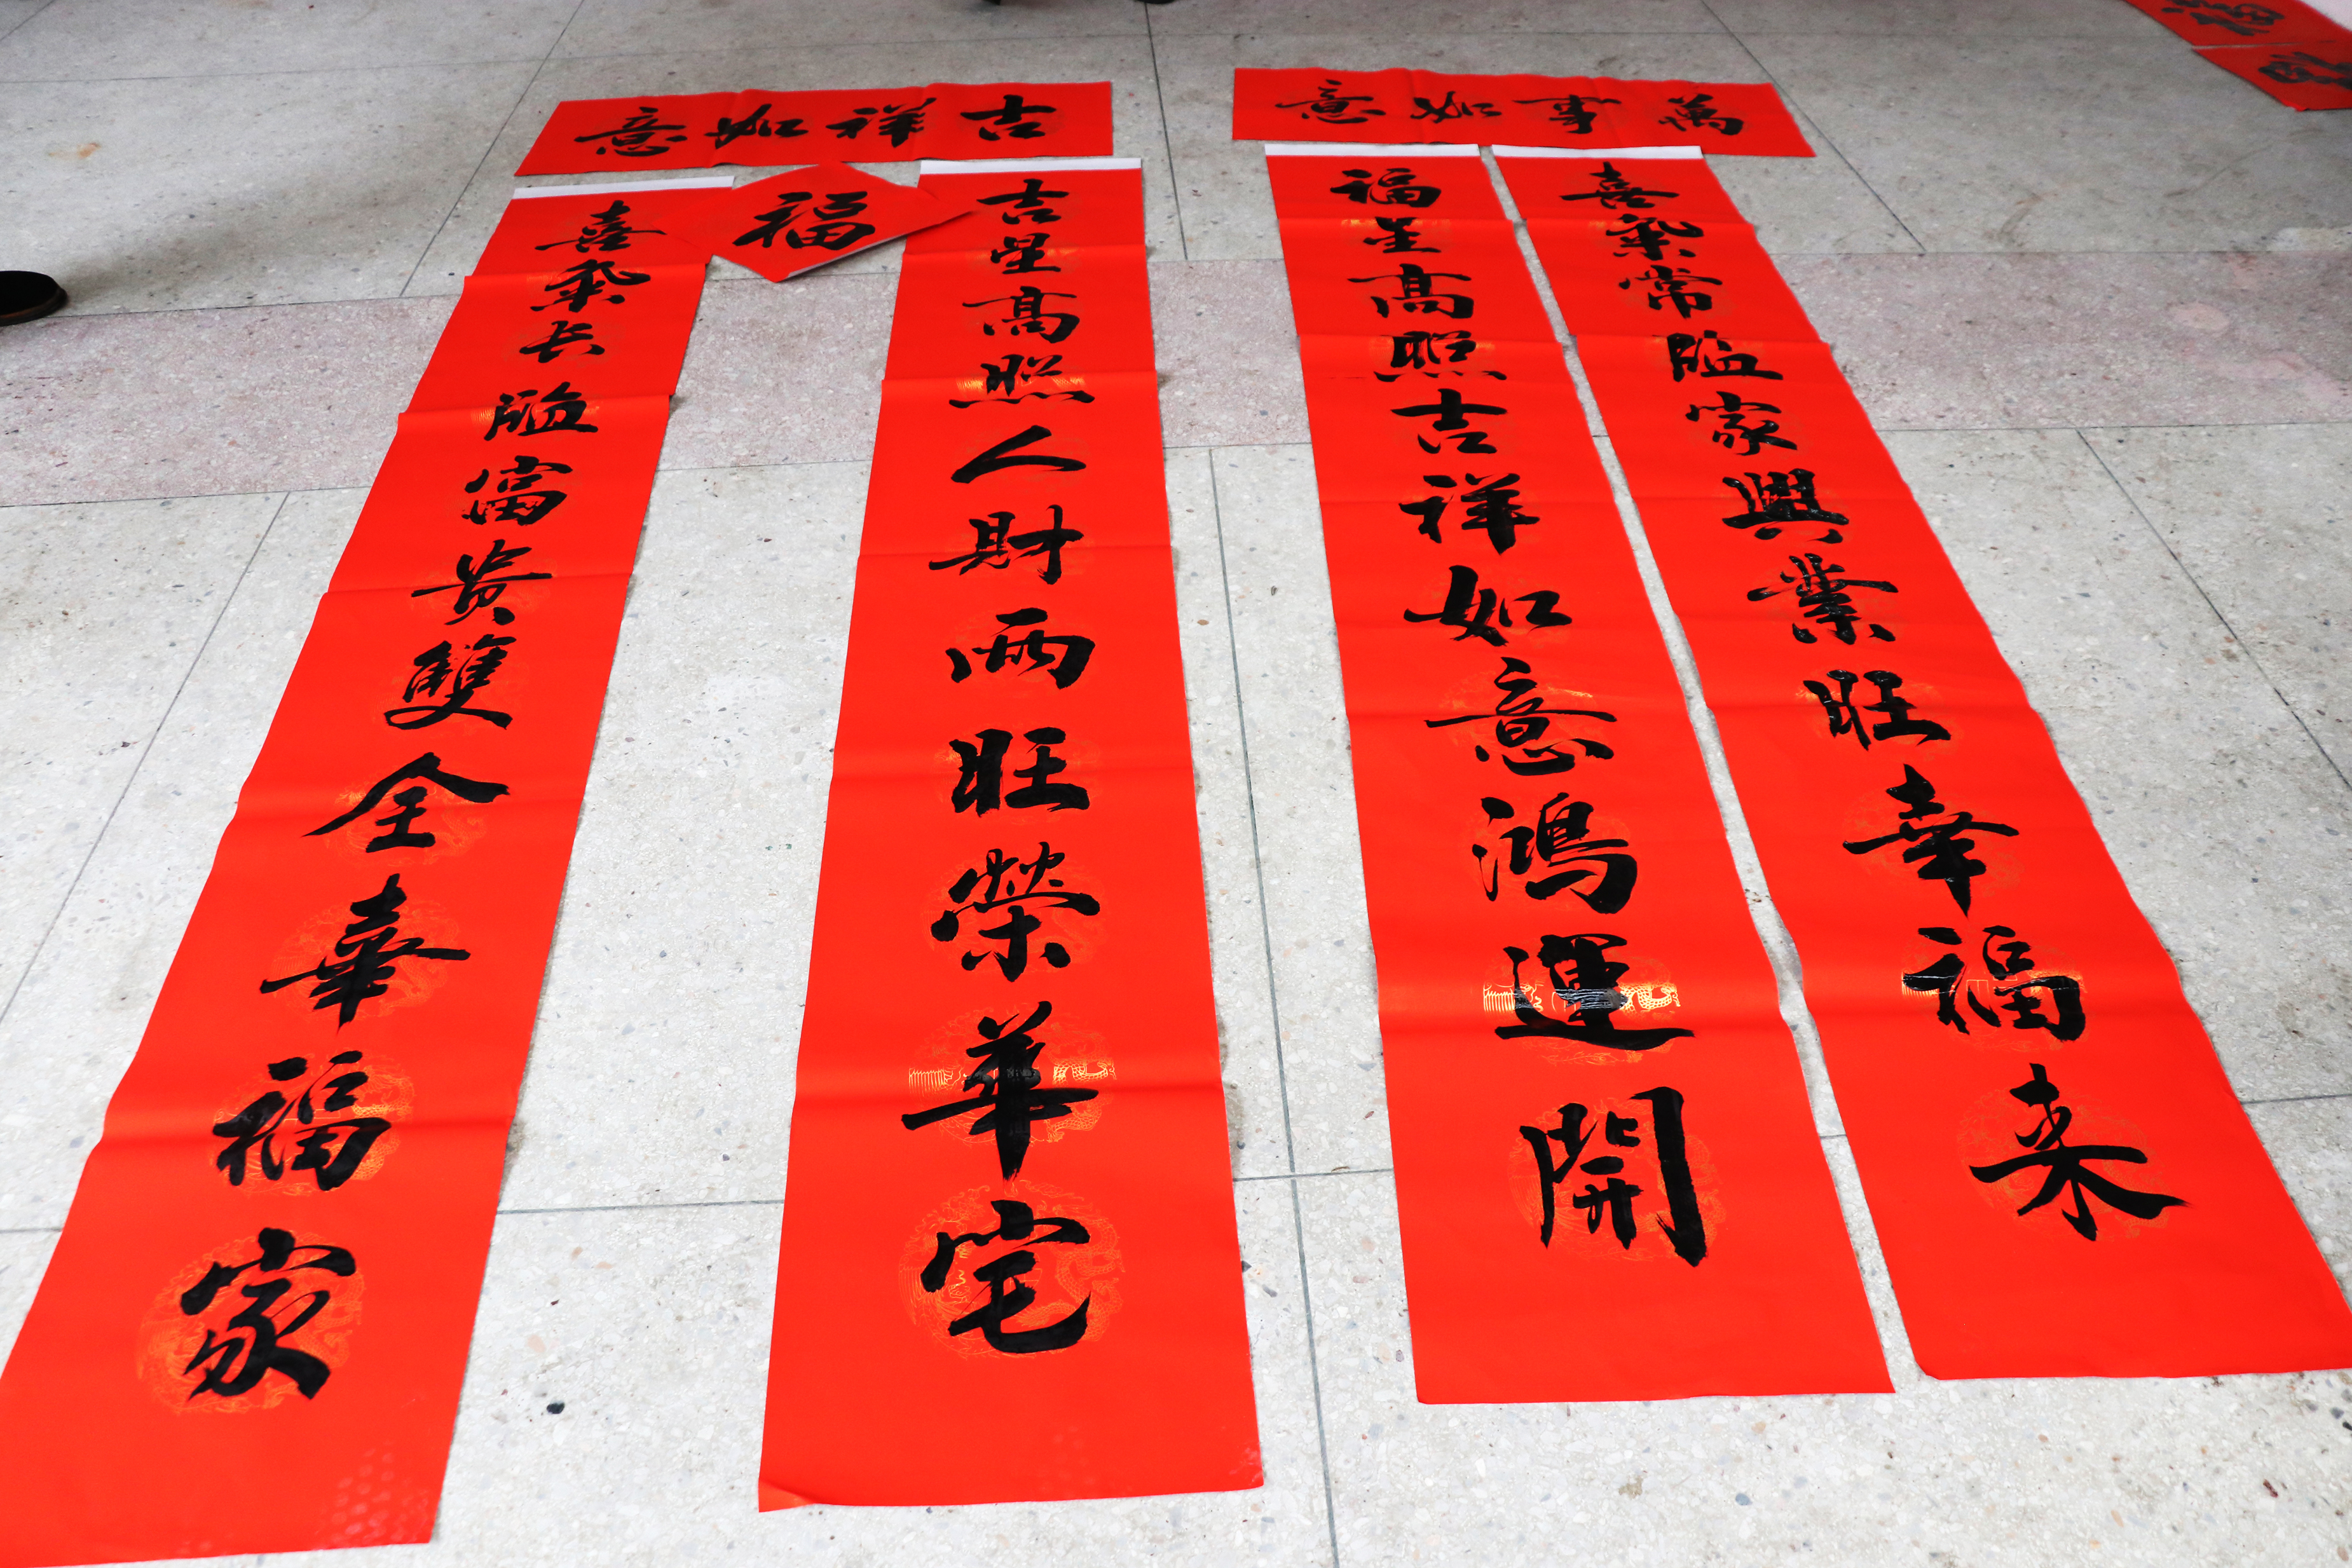 吉祥如意
福
吉星高照人財兩旺榮華宅
喜氣长臨富贵雙全幸福家
萬事如意
喜氣常臨家興業旺幸福来
福星高照吉祥如意鴻運開